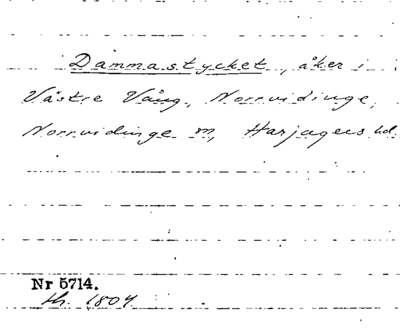 Dammastycket, åker i
Västre Vång, Norrvidinge,
Norrvidinge sn, Harjagers hd.
Nr 5714.
1804.